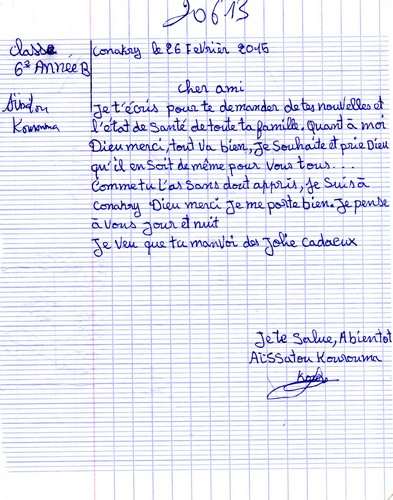 20613
Classe
6e Année B
Conakry le 26 Fevrier 2015
Cher ami
Kourouma
Je t'écris pour te demander de tes nouvelles et
l'état de Santé de toute ta famille. Quant à moi
Dieu merci, tout va bien, Je Souhaite et prie Dieu
qu'il en Soit de même pour Vous tous...
Comme tu L'as Sans dout appris, Je Suis à
Conakry Dieu merci Je me porte bien. Je pense
à Vous Jour et nuit
Je Veu que tu manvoi des Jolie Cadaeux
Je te Salue, A bientot
Aïssatou Kourouma